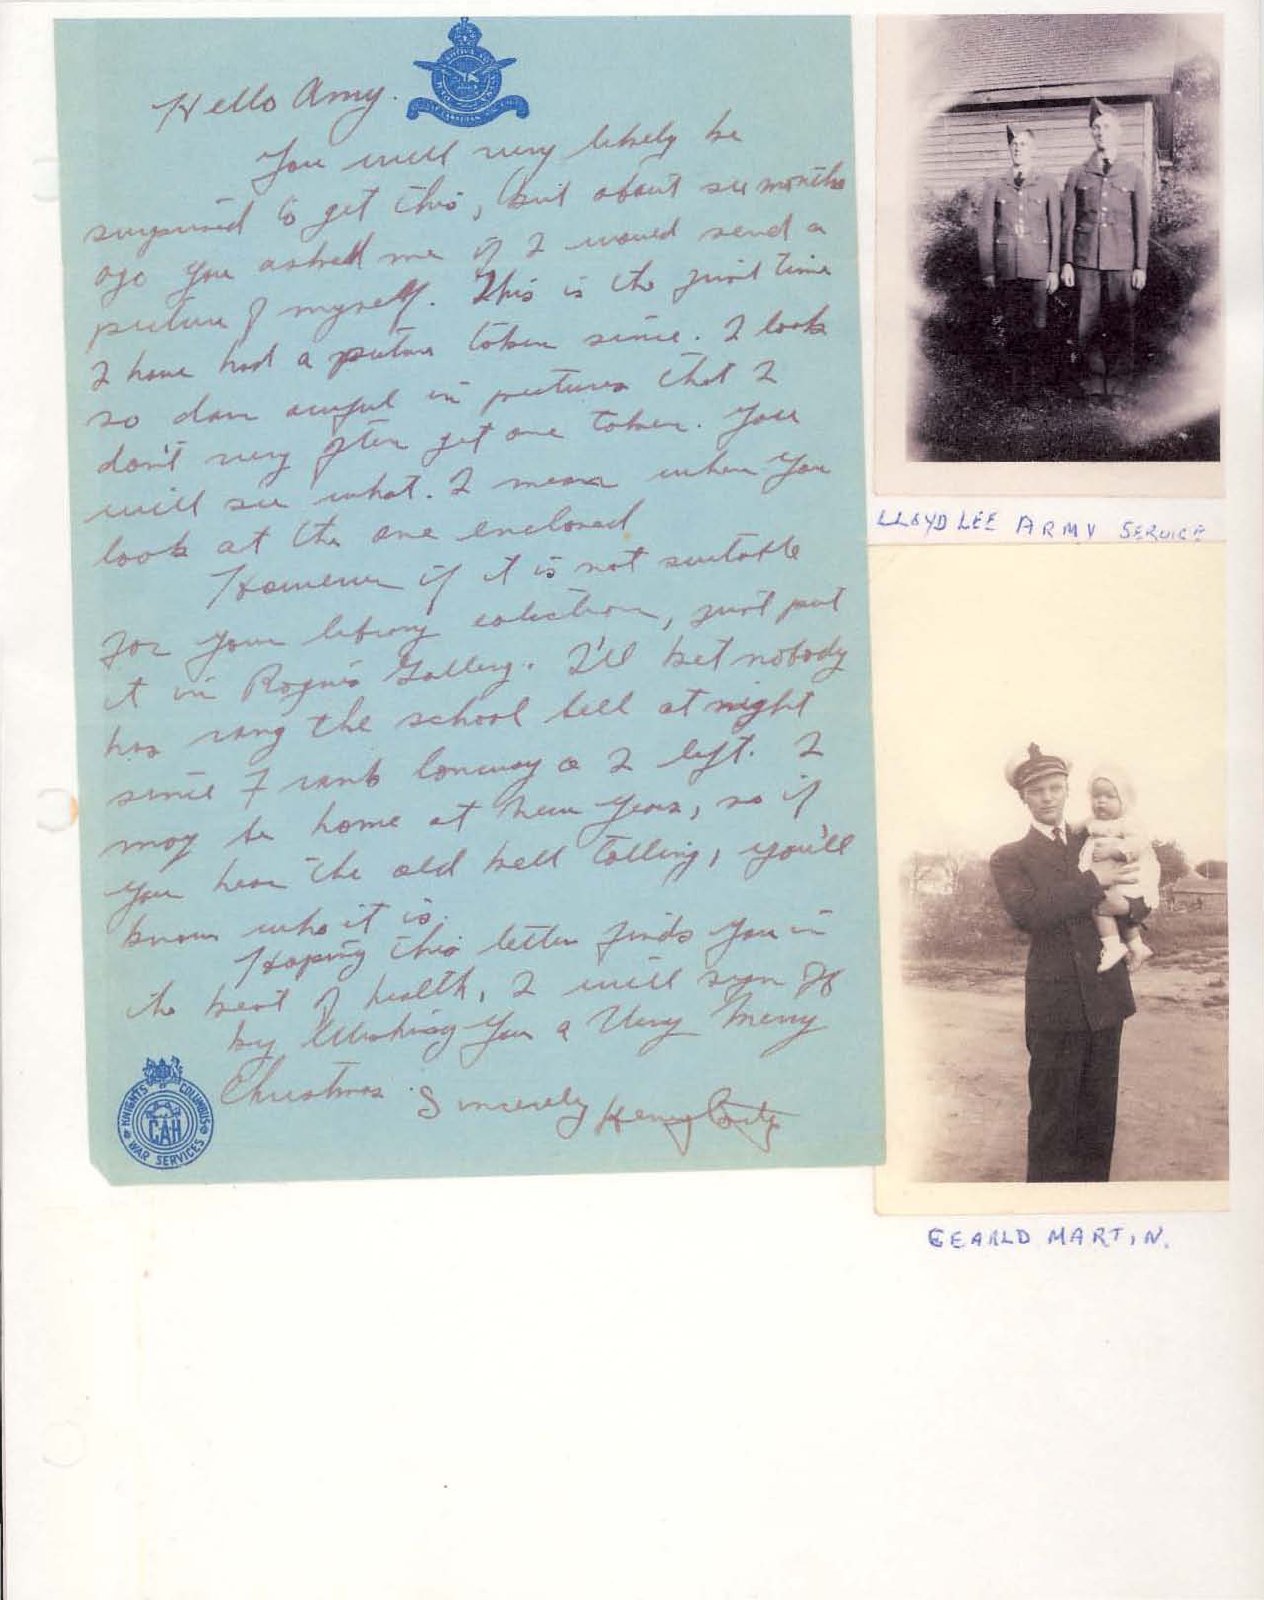 Hello Amy.
You will very likely be
surprised to get this, but about six months
ago you asked me if I would send a
picture of myself. This is the first time
I have had a picture taken since. I look
so darn awful in pictures that I
don't very often get one taken. You
will see what I mean when you
look at the one enclosed
However if it is not suitable
for your library collection, just put
it in Rogue's Gallery. I'll bet nobody
has rang the school bell at night
since Frank Conway & I left. I
may be home at New Years, so if
you hear the old bell tolling, you'll
know who it is.
Hoping this letter finds you in
the best of health, I will sign off
by Wishing You a Very Merry
Christmas. Sincerely Henry
KNIGHTS OF COLUMBUS
CAH
WAR SERVICES
LLOYD LEE ARMY SERVICE
GEARLD MARTIN.